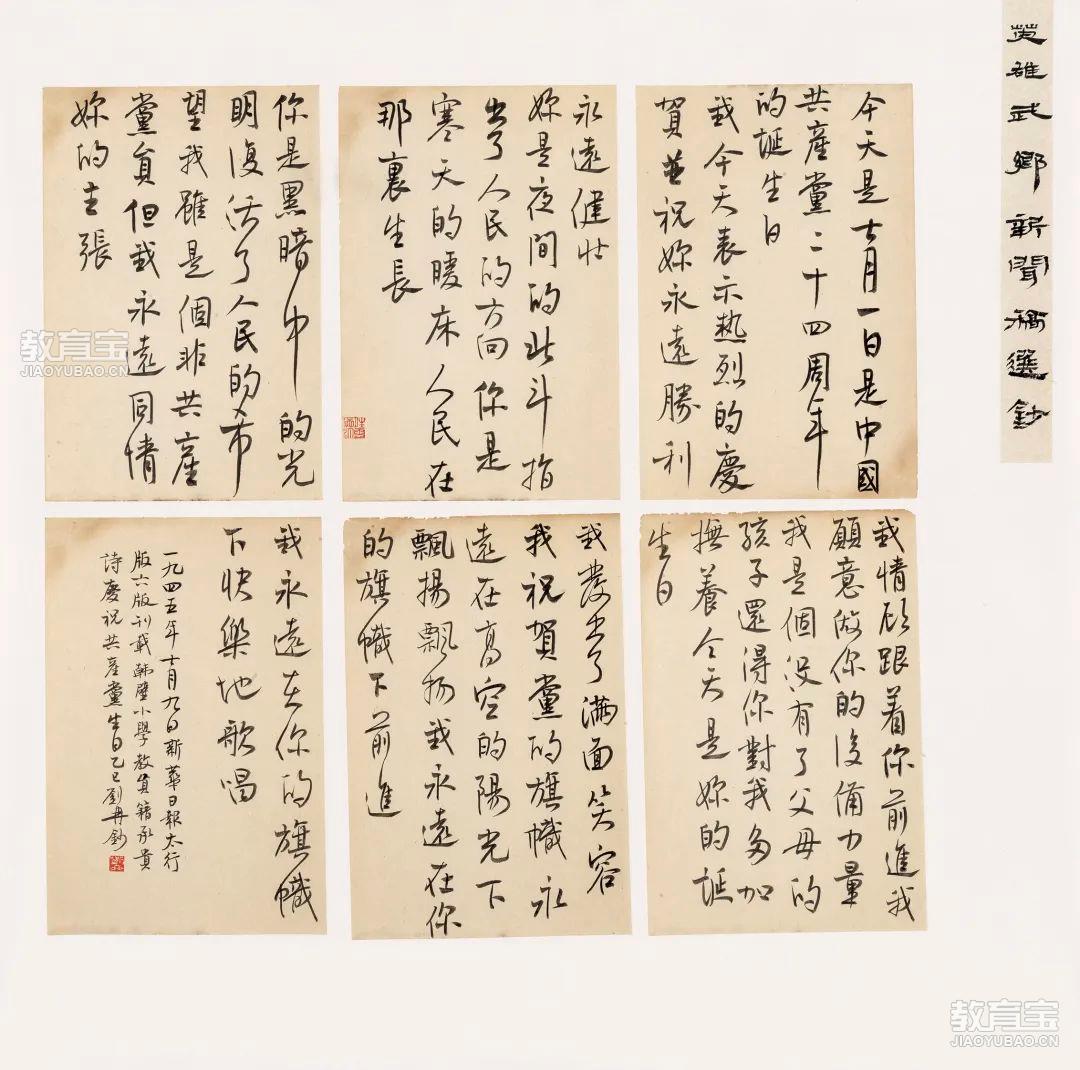 英雄武鄉新聞稿選鈔
今天是七月一日是中國
共產黨二十四周年
的誕生日
我今天表示热烈的慶
賀並祝妳永遠勝利
永遠健壯
妳是夜间的北斗指
出了人民的方向你是
寒天的暖床人民在
那裏生長
你是黑暗中的光
明復活了人民的希
望我雖是個非共産
黨員但我永遠同情
妳的主張
我情願跟着你前進我
願意做你的後備力量
我是個没有了父母的
孩子還得你對我多加
撫養今天是妳的誕
生日
我發出了满面笑容
我祝賀黨的旗幟永
遠在高空的陽光下
飄揚飄扬我永遠在你
的旗幟下前進
我永遠在你的旗幟
下快樂地歌唱
一九四五年七月九日新華日報太行
版六版刊載韩壁小學教員籍承貴
詩慶祝共産黨生日乙巳劉丹鈔
教育宝
JIAOYUBAO.CN
教育宝
JIAOYUBAO.CN